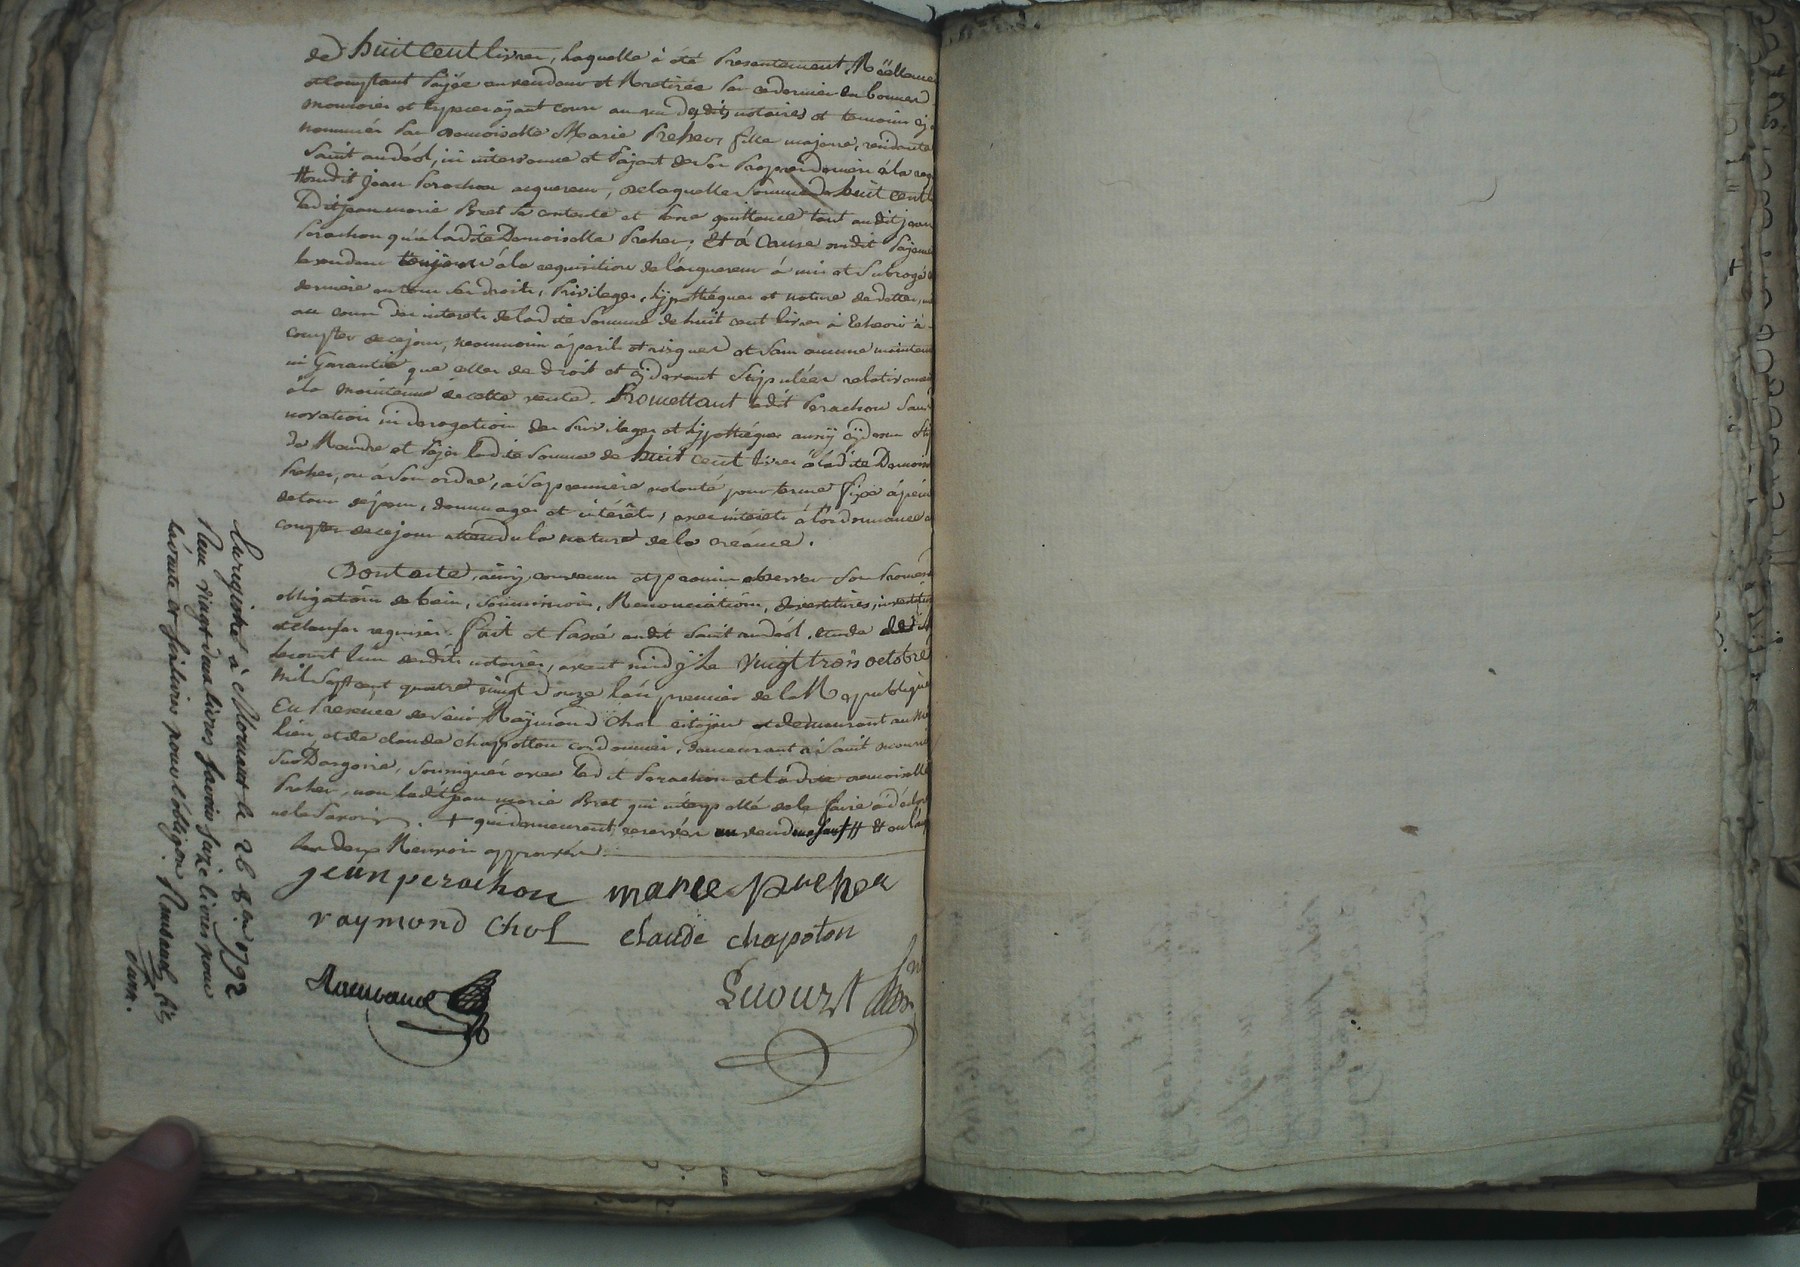 de huit cent livres, laquelle à été Présentement, Réellement
et comptant Payée au vendeur et Retirée Par ce dernier en bonnes
monnoies et espèces ayant cours au vu desdits notaires et temoins cy
nommés Par Demoiselle Marie Preher, fille majeure, residante
Saint andéol, ici intervenue et Payant de ses Propres deniers à la req
dudit jean Perachon acquereur, de laquelle somme de huit cent
ledit jean marie Bret se contente et Passe quittance tant audit jean
Perachon qu'a ladite Demoiselle Preher; Et à Cause dudit Payement
le vendeur toujours à la requisition de l'acquereur à mis et subrogé
derniere en tous ses droits, Privileges, hypothéques et nature de dettes,
au cours des interets de ladite Somme de huit cent livres à Echeoir à
compter de ce jour, neanmoins à perils et risques et sans aucune maintenue
ni Garantie que celles de droit et cy devant Stipulées relativement
à la maintenue de cette vente. Promettant ledit Perachon Sans
novation ni derogation des Privileges et hypothéques aussy cy dessus
de Rendre et Payer ladite Somme de huit cent livres à ladite Demoise
Preher, ou à Son ordre, à Sa premiere volonté pour terme fixe à peine
de tous dépens, dommages et intérêts, avec interets à l'ordonnance à
compter de ce jour attendu la nature de la créance.
Dont acte, ainsy convenu et promis observer Sous Promesse
obligation de biens, Soumissions, Renonciations, devestitures, investitures
et clauses requises. Fait et Passé audit Saint andéol, etude de
Lecourt l'un desdits notaires, avant midy Le vingt trois octobre
mil Sept cent quatre vingt douze l'an premier de la République
En Presence de Sieur Raymond Chol citoyen et demeurant au
lieu, et de claude chapotton cordonnier, demeurant à Saint maurice
Sur Dargoire, Soussignés avec ledit Perachon et ladite demoiselle
Preher, non ledit jean marie Bret qui interpellé de le faire a déclaré
ne le Savoir. + qui demeurent reservés au vendeur
les deux Renvois approuvés
jean perachon marie preher
raymond Chol claude chapoton
Enregistré à Mornant le 26 8.bre 1792
Reçu vingt deux livres Savoir Seize livres pour
la vente et Six livres pour l'obligon.